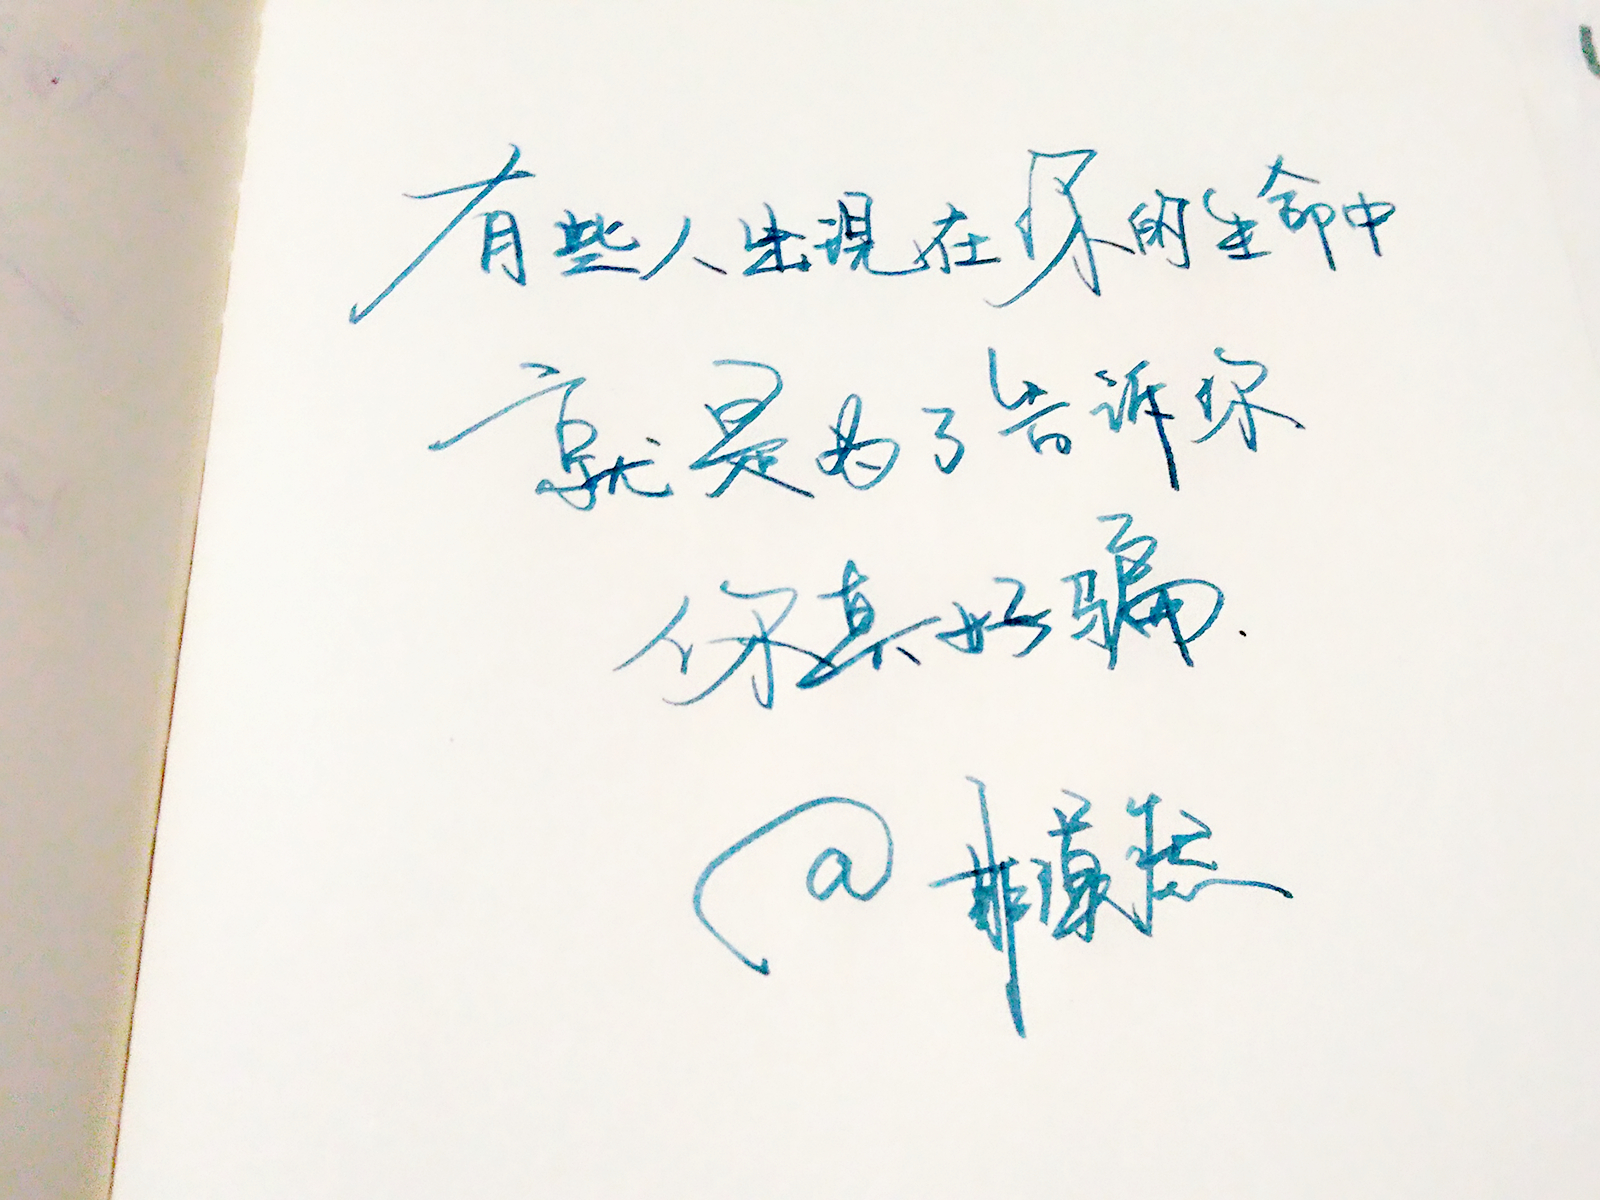 有些人出现在你的生命中
就是为了告诉你
你真好骗.
@